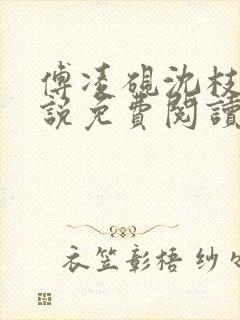 傅凌硯沈枝
說免費閱讀
衣笠彰梧 纱